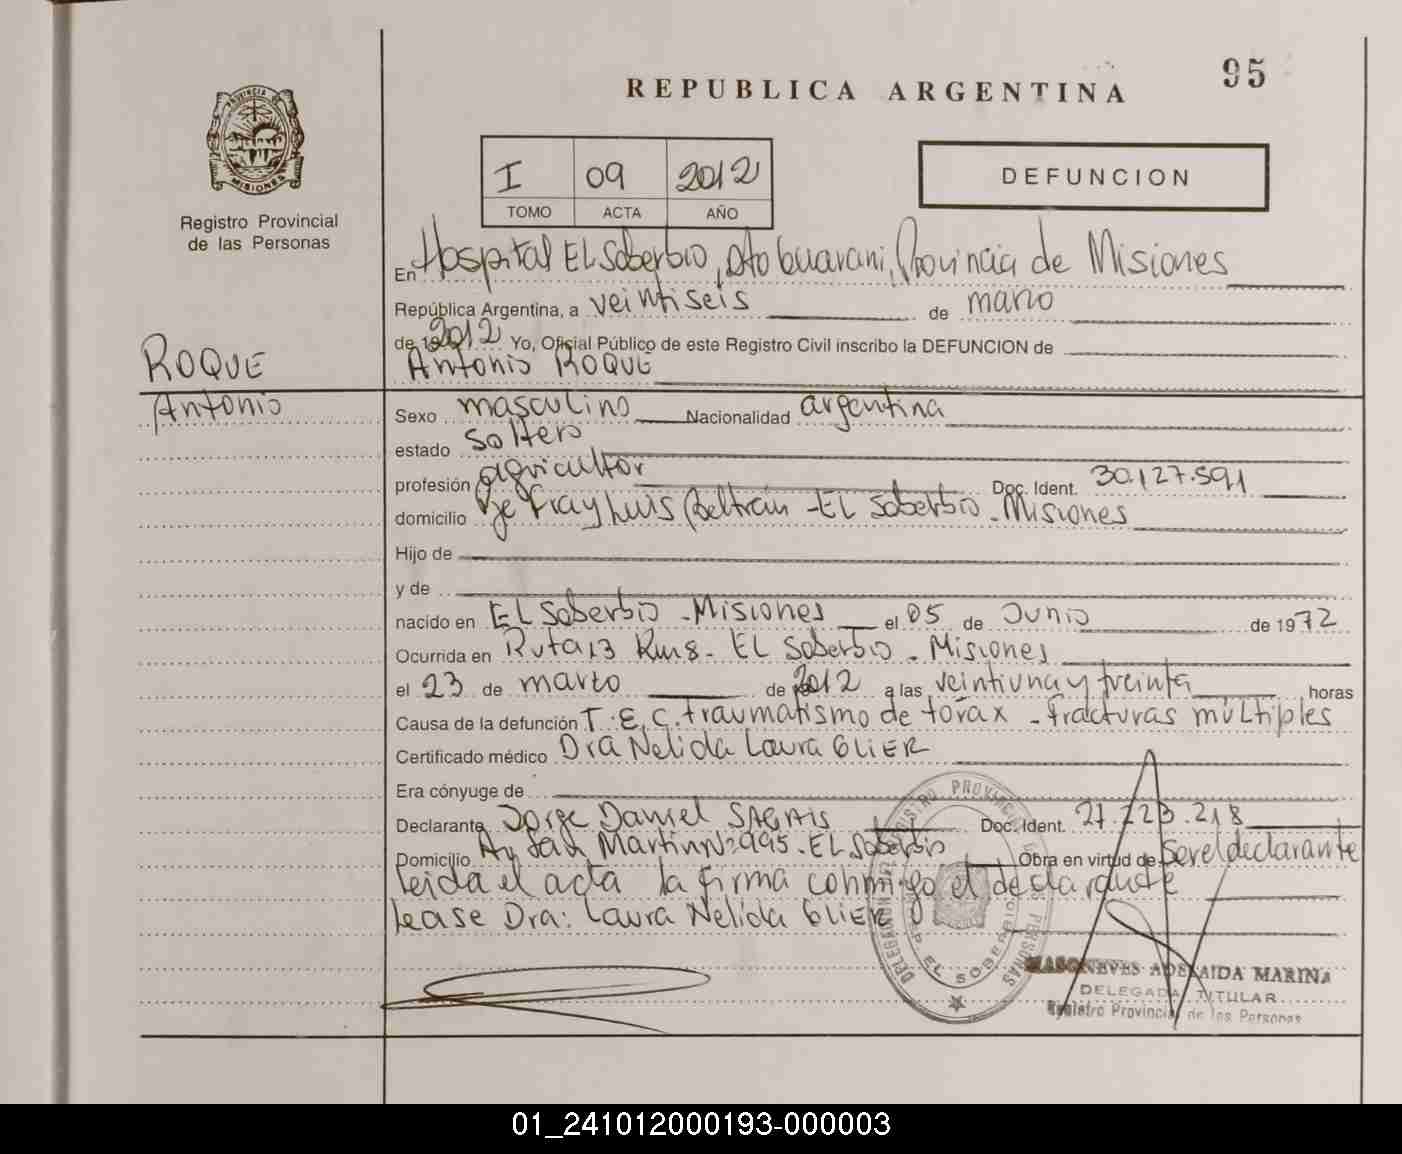 95
REPUBLICA ARGENTINA
PROVINCIA DE MISIONES
Registro Provincial
de las Personas
I 09 2012
TOMO ACTA AÑO
DEFUNCION
En Hospital El Soberbio, Dto Guarani, Provincia de Misiones
República Argentina, a veintiseis de marzo
de 2012 Yo, Oficial Público de este Registro Civil inscribo la DEFUNCION de
Antonio ROQUE
ROQUE
Antonio
Sexo masculino Nacionalidad argentina
estado soltero
profesión agricultor Doc. Ident. 30.127.591
domicilio Pje Fray Luis Beltrán - El Soberbio - Misiones
Hijo de
y de
nacido en El Soberbio - Misiones el 05 de Junio de 1972
Ocurrida en Ruta 13 Km 8 - El Soberbio - Misiones
el 23 de marzo de 2012 a las veintiuna y treinta horas
Causa de la defunción T.E.C. traumatismo de tórax - fracturas múltiples
Certificado médico Dra Nelida Laura GLIER
Era cónyuge de
Declarante Jorge Daniel Doc. Ident. 27.223.218
Domicilio Av San Martin Nº 995 - El Soberbio Obra en virtud de ser el declarante
Leida el acta la firma conmigo el declarante
Lease Dra: Laura Nelida GLIER
EL SOBERBIO
ADELAIDA MARINA
DELEGADA TITULAR
Registro Provincial de las Personas
01_241012000193-000003